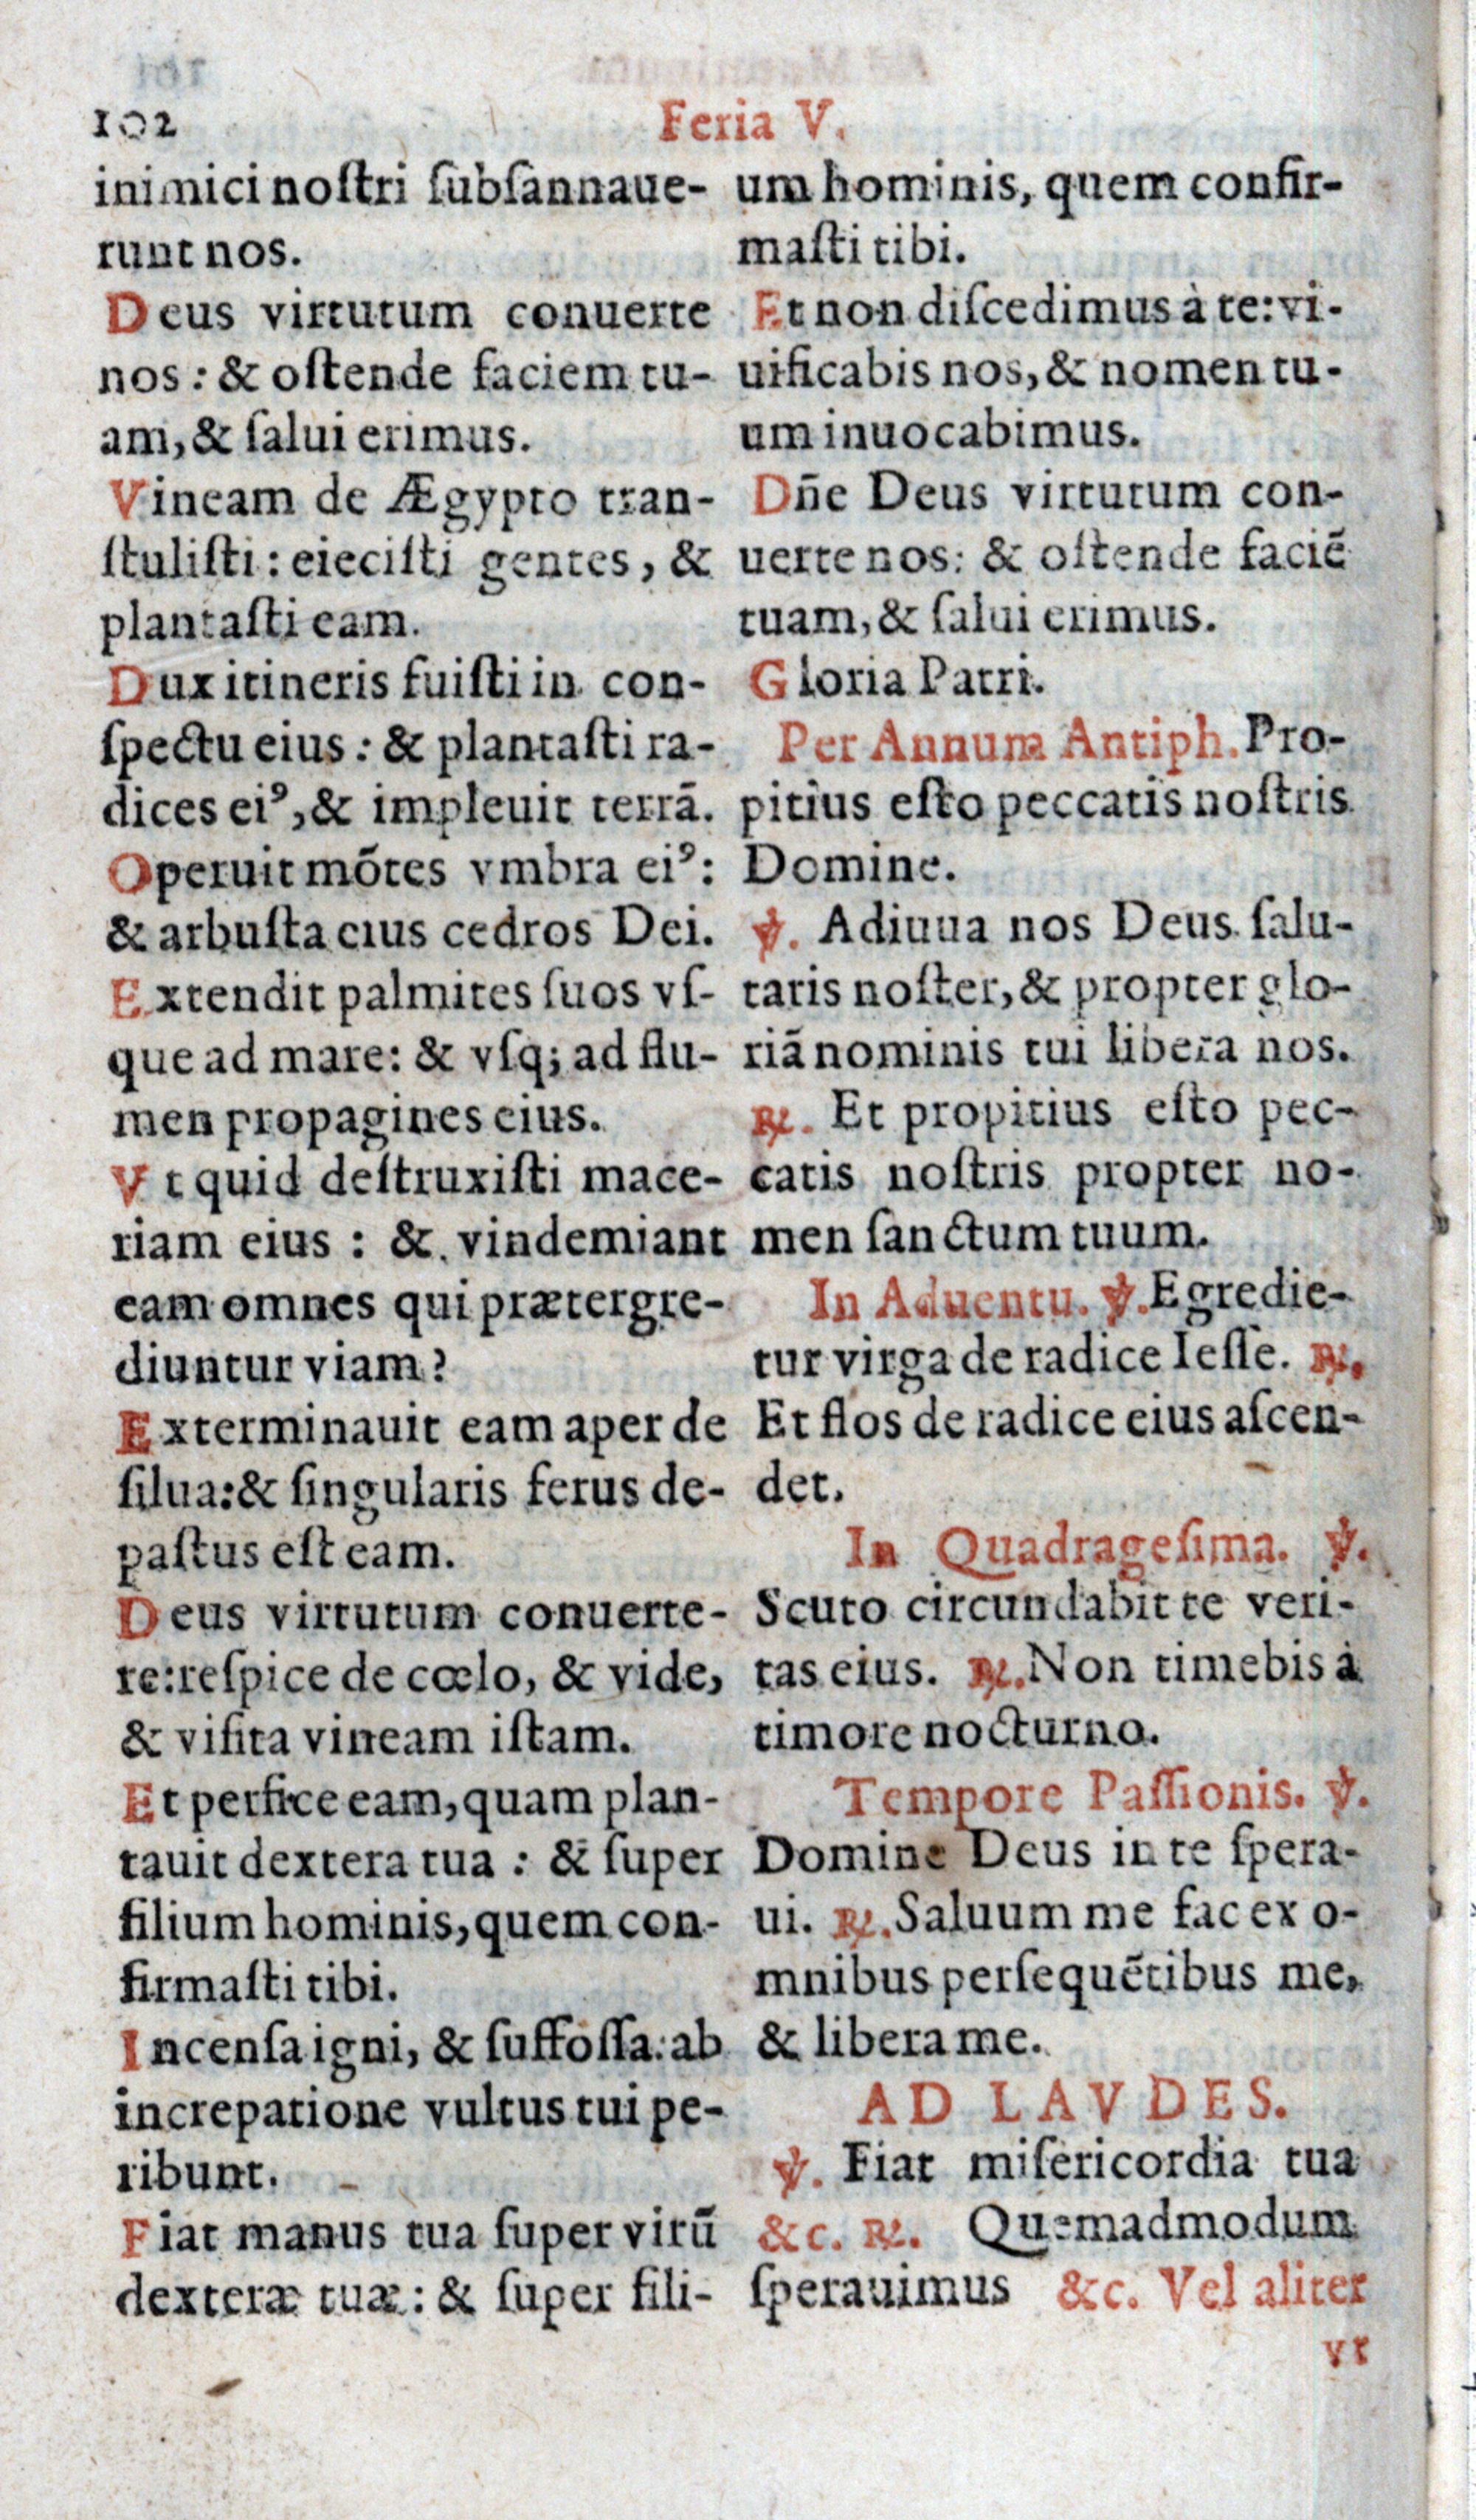 102
Feria V.
inimici noſtri ſubſannaue-
runt nos.
Deus virtutum conuerte
nos: & oſtende faciem tu-
am, & ſalui erimus.
Vineam de Ægypto tran-
ſtuliſti: eieciſti gentes, &
plantaſti eam.
Dux itineris fuiſti in con-
ſpectu eius: & plantaſti ra-
dices eiꝰ, & impleuit terrã.
Operuit mõtes vmbra eiꝰ:
& arbuſta eius cedros Dei.
Extendit palmites ſuos vſ-
que ad mare: & vſq; ad flu-
men propagines eius.
Vt quid deſtruxiſti mace-
riam eius: & vindemiant
eam omnes qui prætergre-
diuntur viam?
Exterminauit eam aper de
ſilua: & ſingularis ferus de-
paſtus eſt eam.
Deus virtutum conuerte-
re: reſpice de cœlo, & vide,
& viſita vineam iſtam.
Et perfice eam, quam plan-
tauit dextera tua: & ſuper
filium hominis, quem con-
firmaſti tibi.
Incenſa igni, & ſuffoſſa: ab
increpatione vultus tui pe-
ribunt.
Fiat manus tua ſuper virũ
dexteræ tuæ: & ſuper fili-
um hominis, quem confir-
maſti tibi.
Et non diſcedimus à te: vi-
uificabis nos, & nomen tu-
um inuocabimus.
Dñe Deus virtutum con-
uerte nos: & oſtende faciẽ
tuam, & ſalui erimus.
Gloria Patri.
Per Annum Antiph. Pro-
pitius eſto peccatis noſtris
Domine.
℣. Adiuua nos Deus ſalu-
taris noſter, & propter glo-
riã nominis tui libera nos.
℞. Et propitius eſto pec-
catis noſtris propter no-
men ſanctum tuum.
In Aduentu. ℣. Egredie-
tur virga de radice Ieſſe. ℞.
Et flos de radice eius aſcen-
det.
In Quadrageſima. ℣.
Scuto circundabit te veri-
tas eius. ℞. Non timebis à
timore nocturno.
Tempore Paſſionis. ℣.
Domine Deus in te ſpera-
ui. ℞. Saluum me fac ex o-
mnibus perſequẽtibus me,
& libera me.
AD LAVDES.
℣. Fiat miſericordia tua
&c. ℞. Quemadmodum
ſperauimus &c. Vel aliter
vt